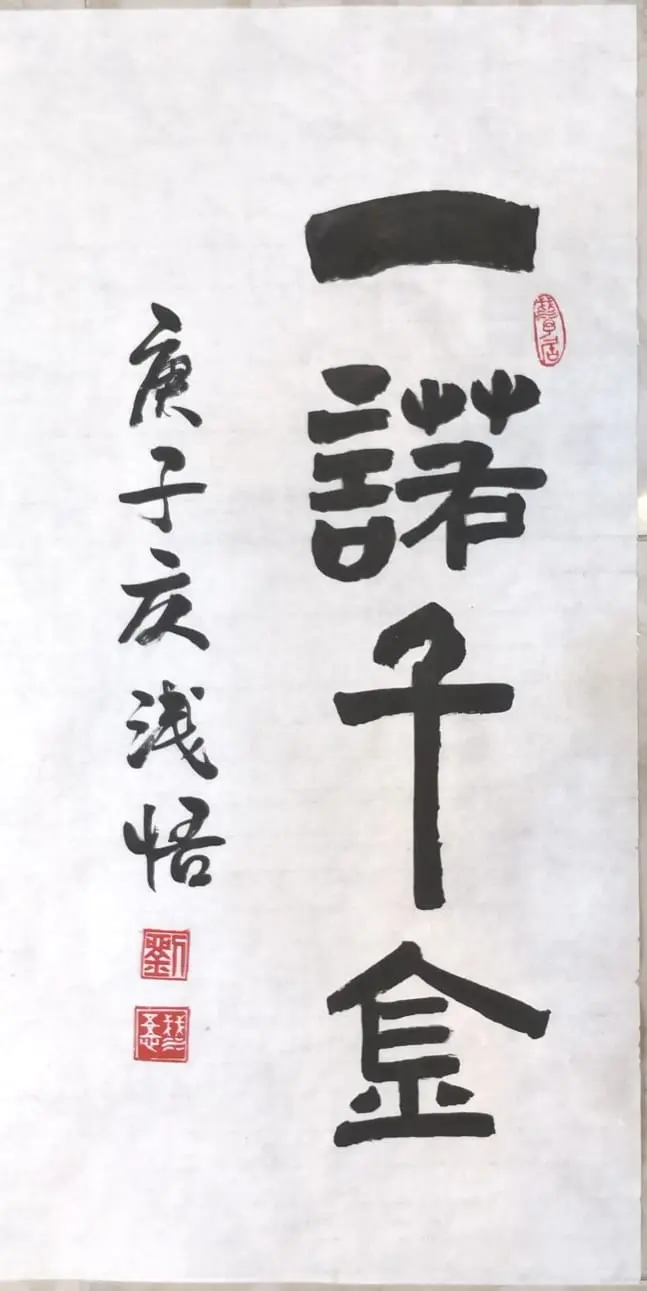 一諾千金
庚子亥浅悟
劉